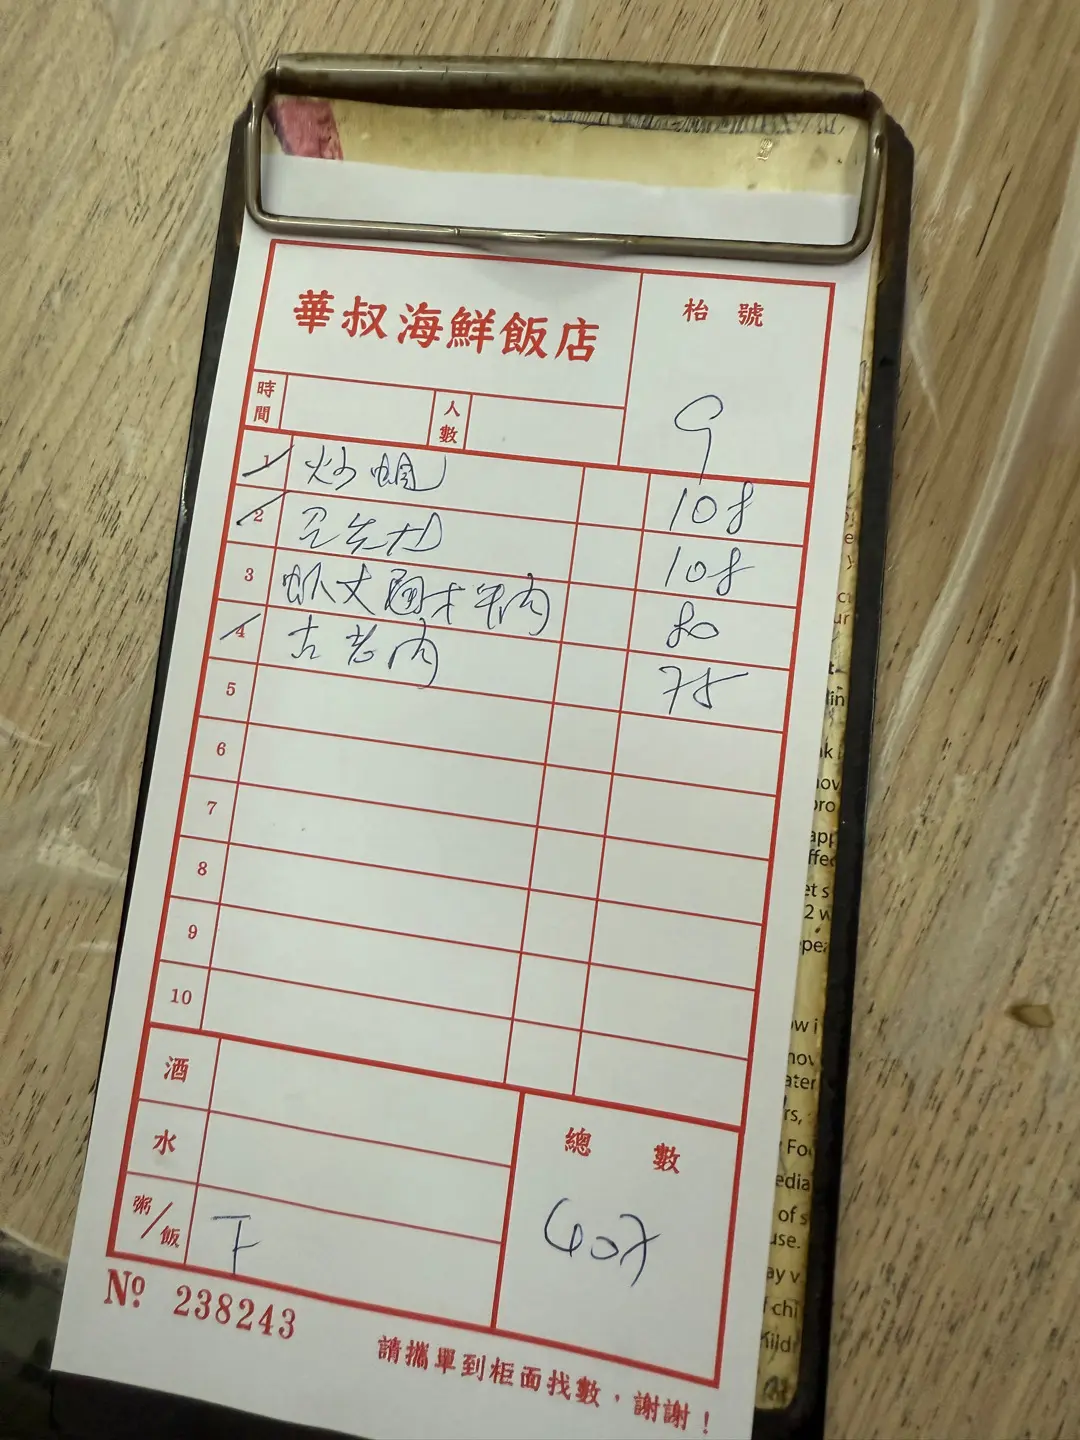 華叔海鮮飯店
枱號
9
時間
人數
1 炒蜆 108
2 108
3 牛肉 80
4 古老肉 78
5
6
7
8
9
10
酒
水
粥/飯 下
總數
407
№ 238243
請攜單到柜面找數，謝謝！